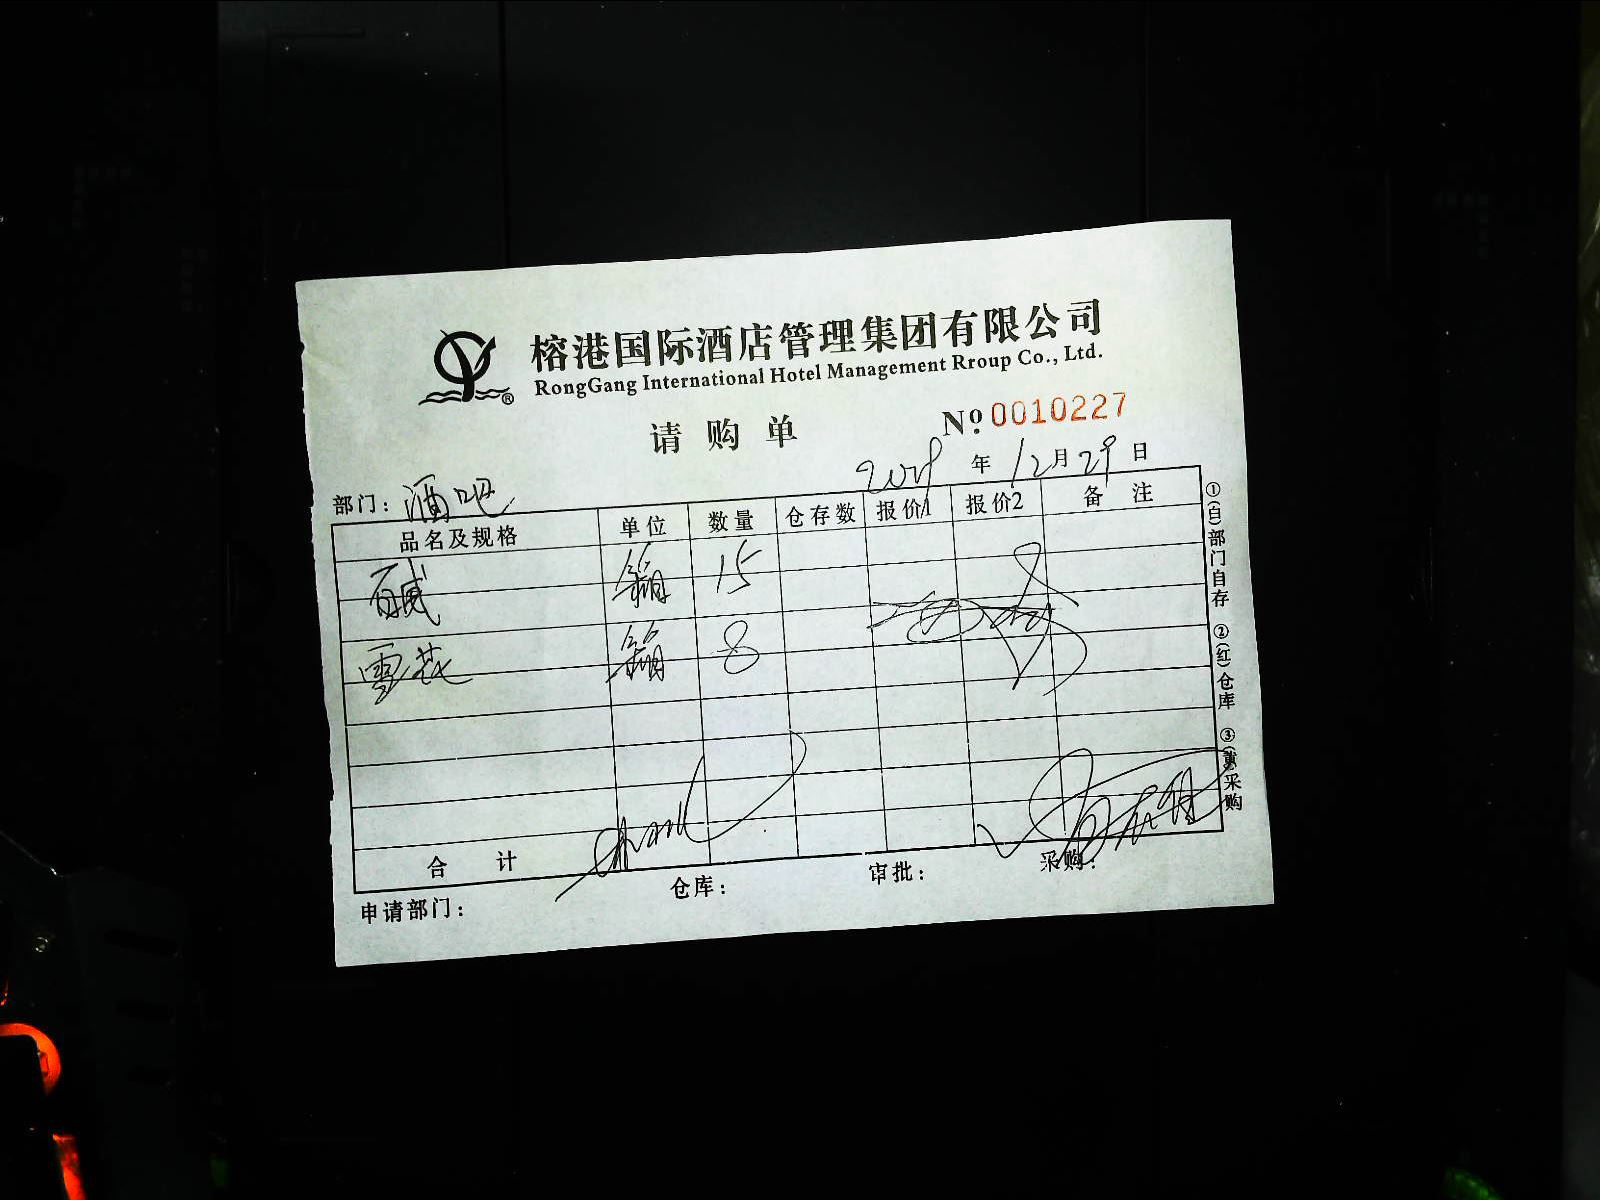 榕港国际酒店管理集团有限公司
RongGang International Hotel Management Rroup Co., Ltd.
®
请购单 No. 0010227
年 12 月 29 日
部门: 酒吧
品名及规格 单位 数量 仓存数 报价1 报价2 备注
百威 箱 15
雪花 箱 8
合计
申请部门: 仓库: 审批: 采购:
①(白)部门自存 ②(红)仓库 ③(黄)采购